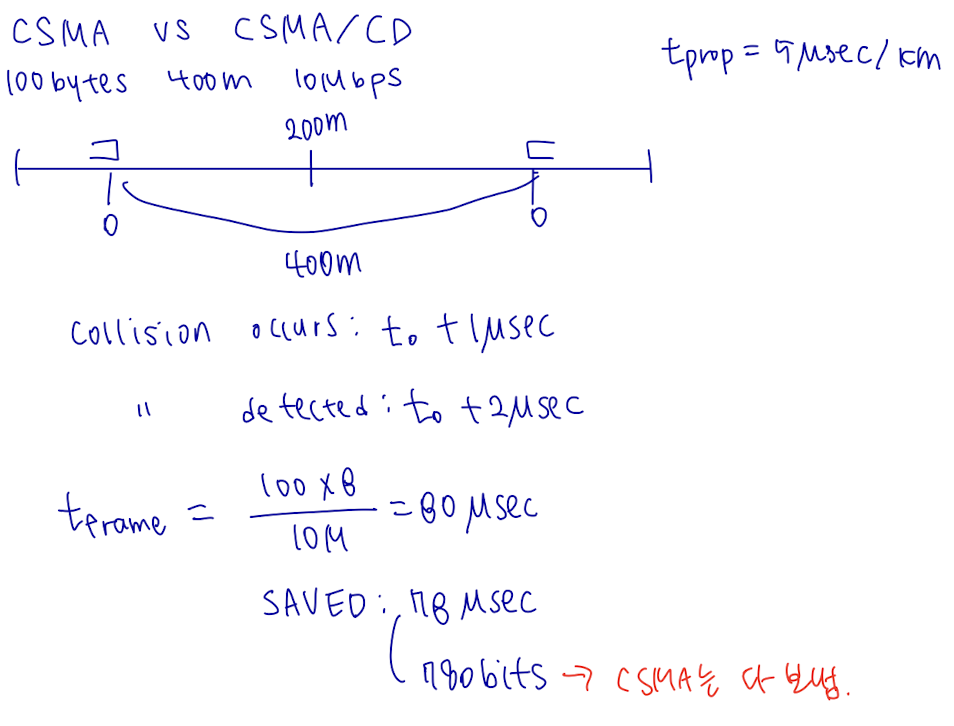 CSMA vs CSMA/CD
tprop = 5μsec/km
100bytes 400m 10Mbps
200m
0 0
400m
collision occurs: t₀ +1μsec
" detected: t₀ +2μsec
tframe = 100×8 / 10M = 80 μsec
SAVED: 78 μsec
780bits → CSMA는 다 보냄.